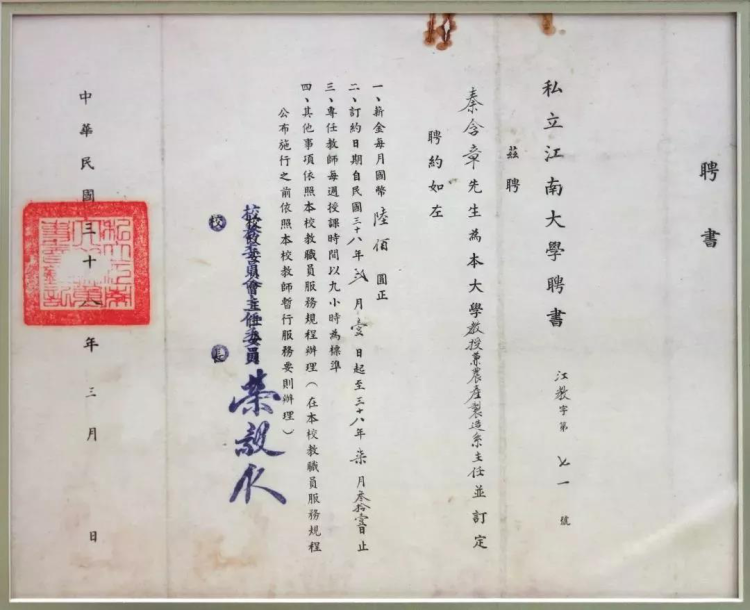 聘書
私立江南大學聘書
江教字第七一號
茲聘
秦含章先生為本大學教授兼農產製造系主任並訂定
聘約如左
一、薪金每月國幣陸佰圓正
二、訂約日期自民國三十八年 月壹日起至三十八年柒月叁拾壹日止
三、專任教師每週授課時間以九小時為標準
四、其他事項依照本校教職員服務規程辦理（在本校教職員服務規程
公布施行之前依照本校教師暫行服務要則辦理）
校務委員會主任委員
榮毅仁
中華民國三十八年三月 日